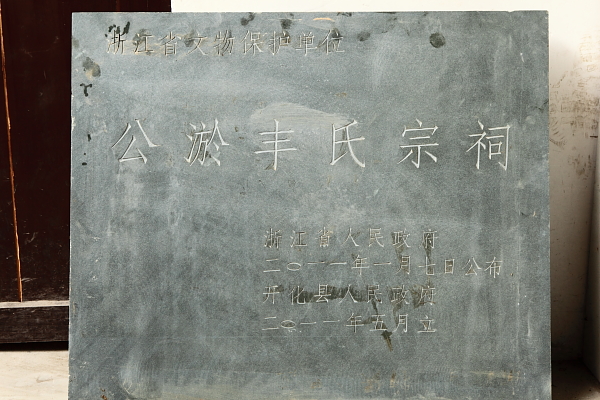 浙江省文物保护单位
公淤丰氏宗祠
浙江省人民政府
二○一一年一月七日公布
开化县人民政府
二○一一年五月立